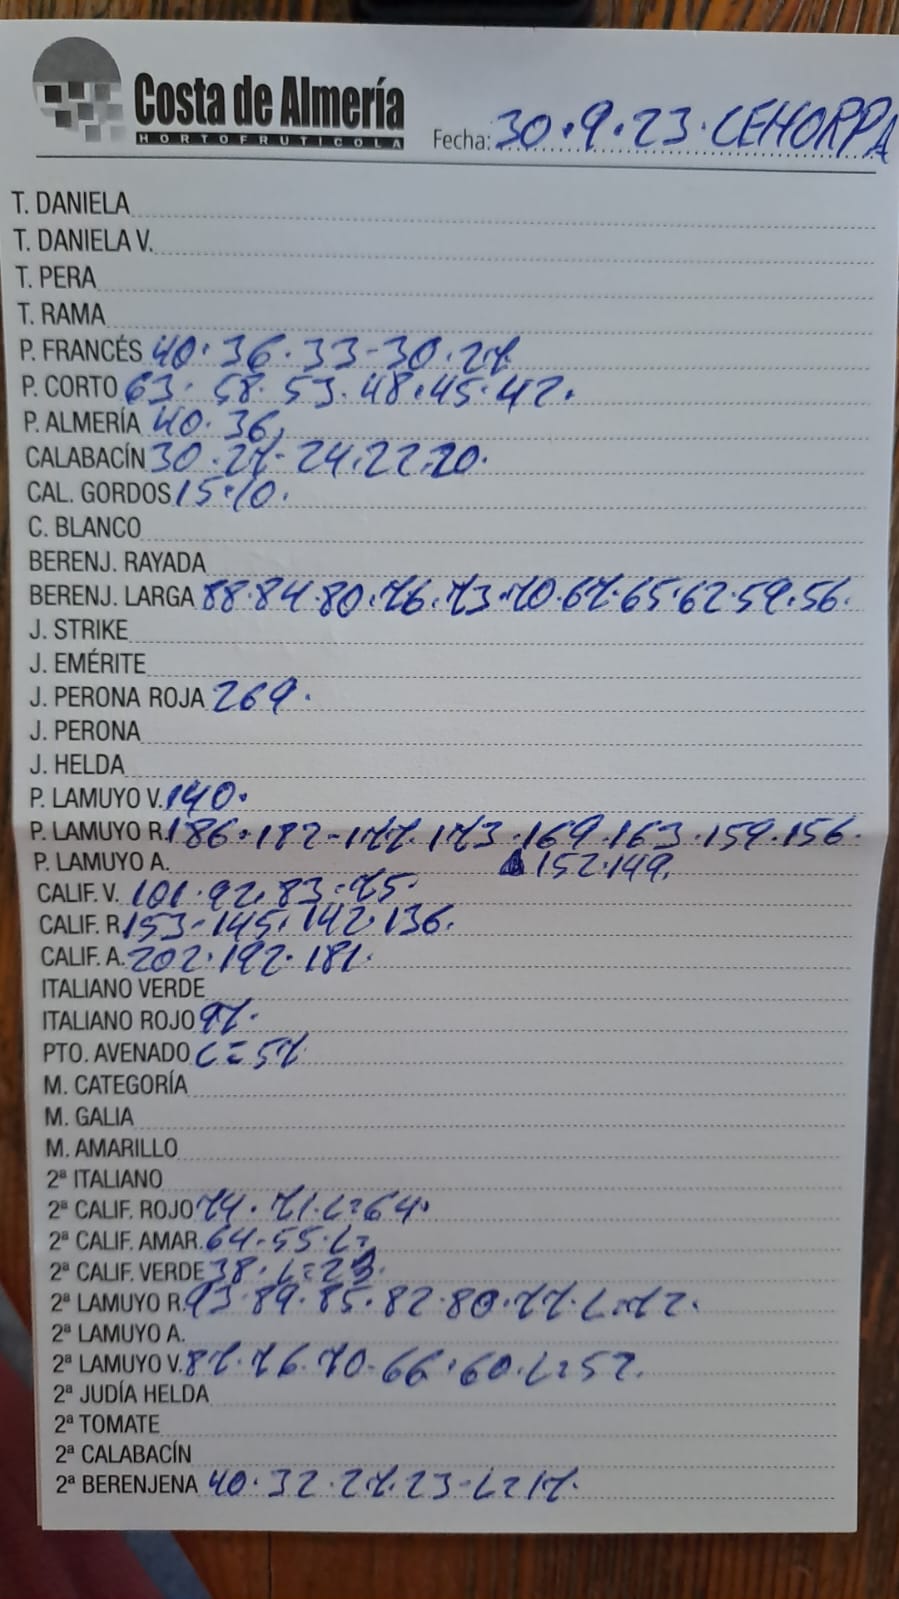 Costa de Almería
HORTOFRUTICOLA
Fecha: 30.9.23. CEHORPA
T. DANIELA
T. DANIELA V.
T. PERA
T. RAMA
P. FRANCÉS 40. 36. 33-30. 27
P. CORTO 63. 58. 53. 48. 45. 42.
P. ALMERÍA 40. 36,
CALABACÍN 30. 27- 24.22.20.
CAL. GORDOS 15.10.
C. BLANCO
BERENJ. RAYADA
BERENJ. LARGA 88.84.80.76.73.70.67.65.62.59.56.
J. STRIKE
J. EMÉRITE
J. PERONA ROJA 269.
J. PERONA
J. HELDA
P. LAMUYO V. 140.
P. LAMUYO R. 186.182-177.173.169.163.159.156.
P. LAMUYO A. 152.149.
CALIF. V. 101.92.83.75.
CALIF. R. 153-145.142.136.
CALIF. A. 202.192.181.
ITALIANO VERDE
ITALIANO ROJO 97.
PTO. AVENADO L=57
M. CATEGORÍA
M. GALIA
M. AMARILLO
2ª ITALIANO
2ª CALIF. ROJO 74. 71. L=64.
2ª CALIF. AMAR. 64-55. L=
2ª CALIF. VERDE 38. L=
2ª LAMUYO R. 93.89.85.82.80.77.L=72.
2ª LAMUYO A.
2ª LAMUYO V. 87.76.70-66.60.L=52.
2ª JUDÍA HELDA
2ª TOMATE
2ª CALABACÍN
2ª BERENJENA 40.32.27.23-L=17.